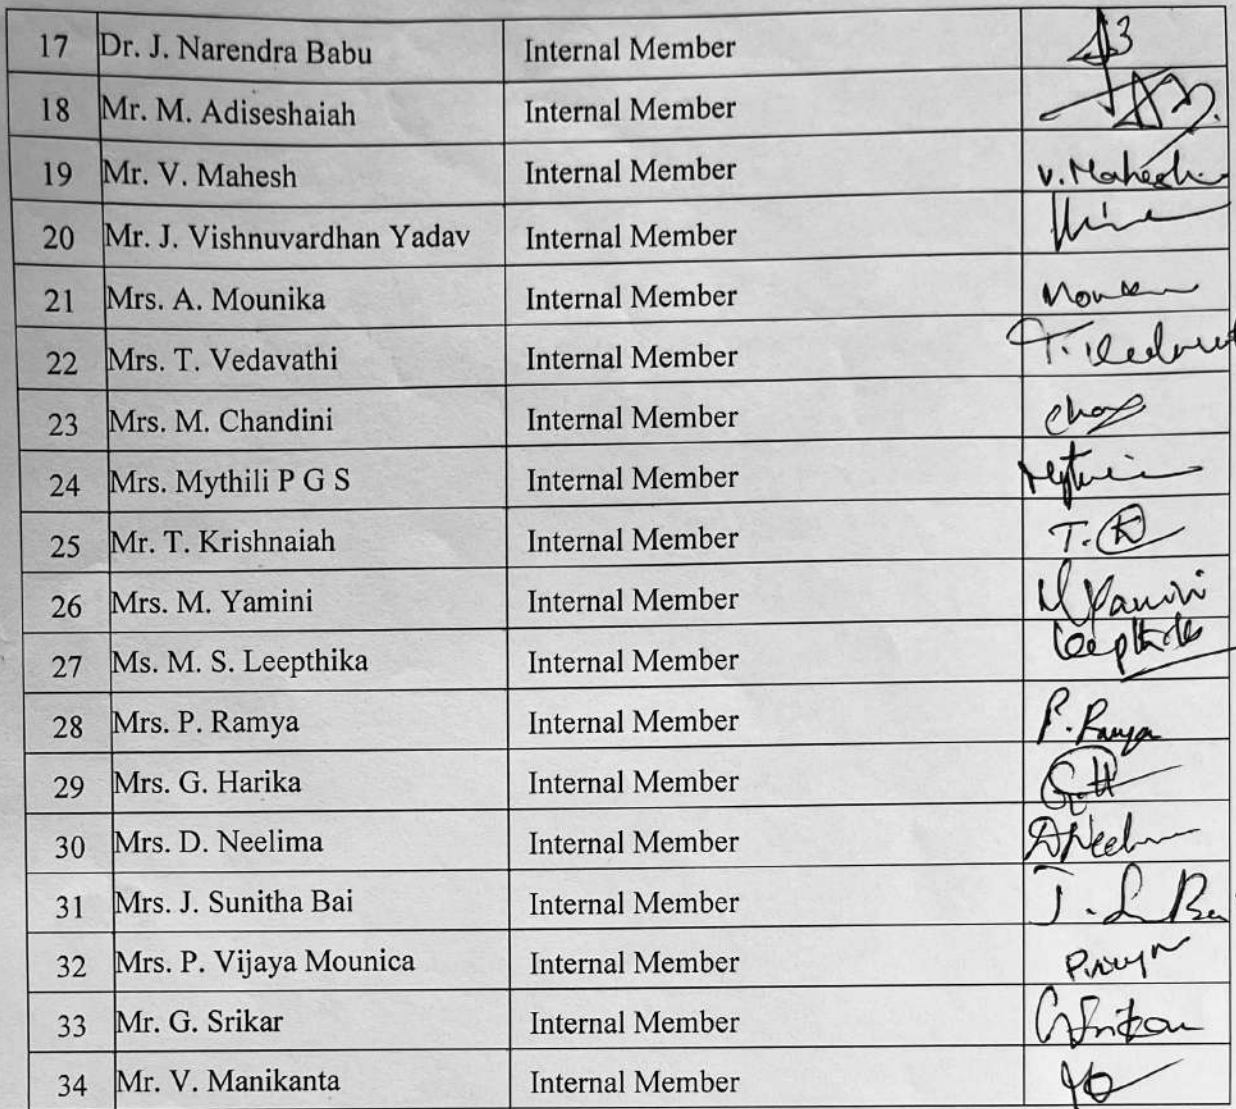 17 Dr. J. Narendra Babu Internal Member
18 Mr. M. Adiseshaiah Internal Member
19 Mr. V. Mahesh Internal Member V. Mahesh
20 Mr. J. Vishnuvardhan Yadav Internal Member
21 Mrs. A. Mounika Internal Member
22 Mrs. T. Vedavathi Internal Member
23 Mrs. M. Chandini Internal Member
24 Mrs. Mythili P G S Internal Member
25 Mr. T. Krishnaiah Internal Member T. K
26 Mrs. M. Yamini Internal Member M Yamini
27 Ms. M. S. Leepthika Internal Member
28 Mrs. P. Ramya Internal Member P. Ramya
29 Mrs. G. Harika Internal Member
30 Mrs. D. Neelima Internal Member
31 Mrs. J. Sunitha Bai Internal Member
32 Mrs. P. Vijaya Mounica Internal Member
33 Mr. G. Srikar Internal Member G Srikar
34 Mr. V. Manikanta Internal Member